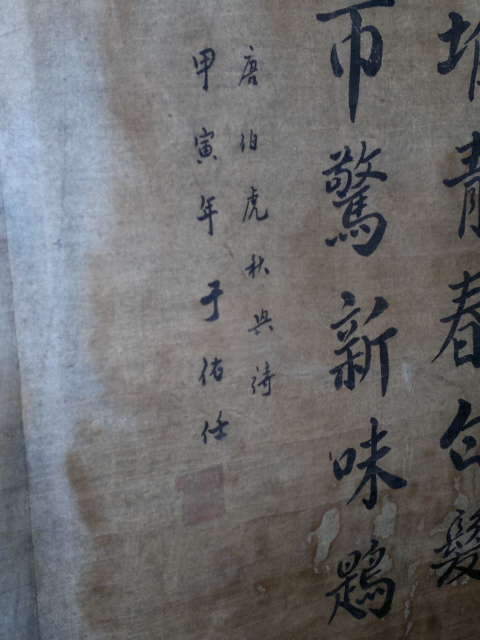 堆青春白髮
帀驚新味鶗
唐伯虎秋興詩
甲寅年于佑任